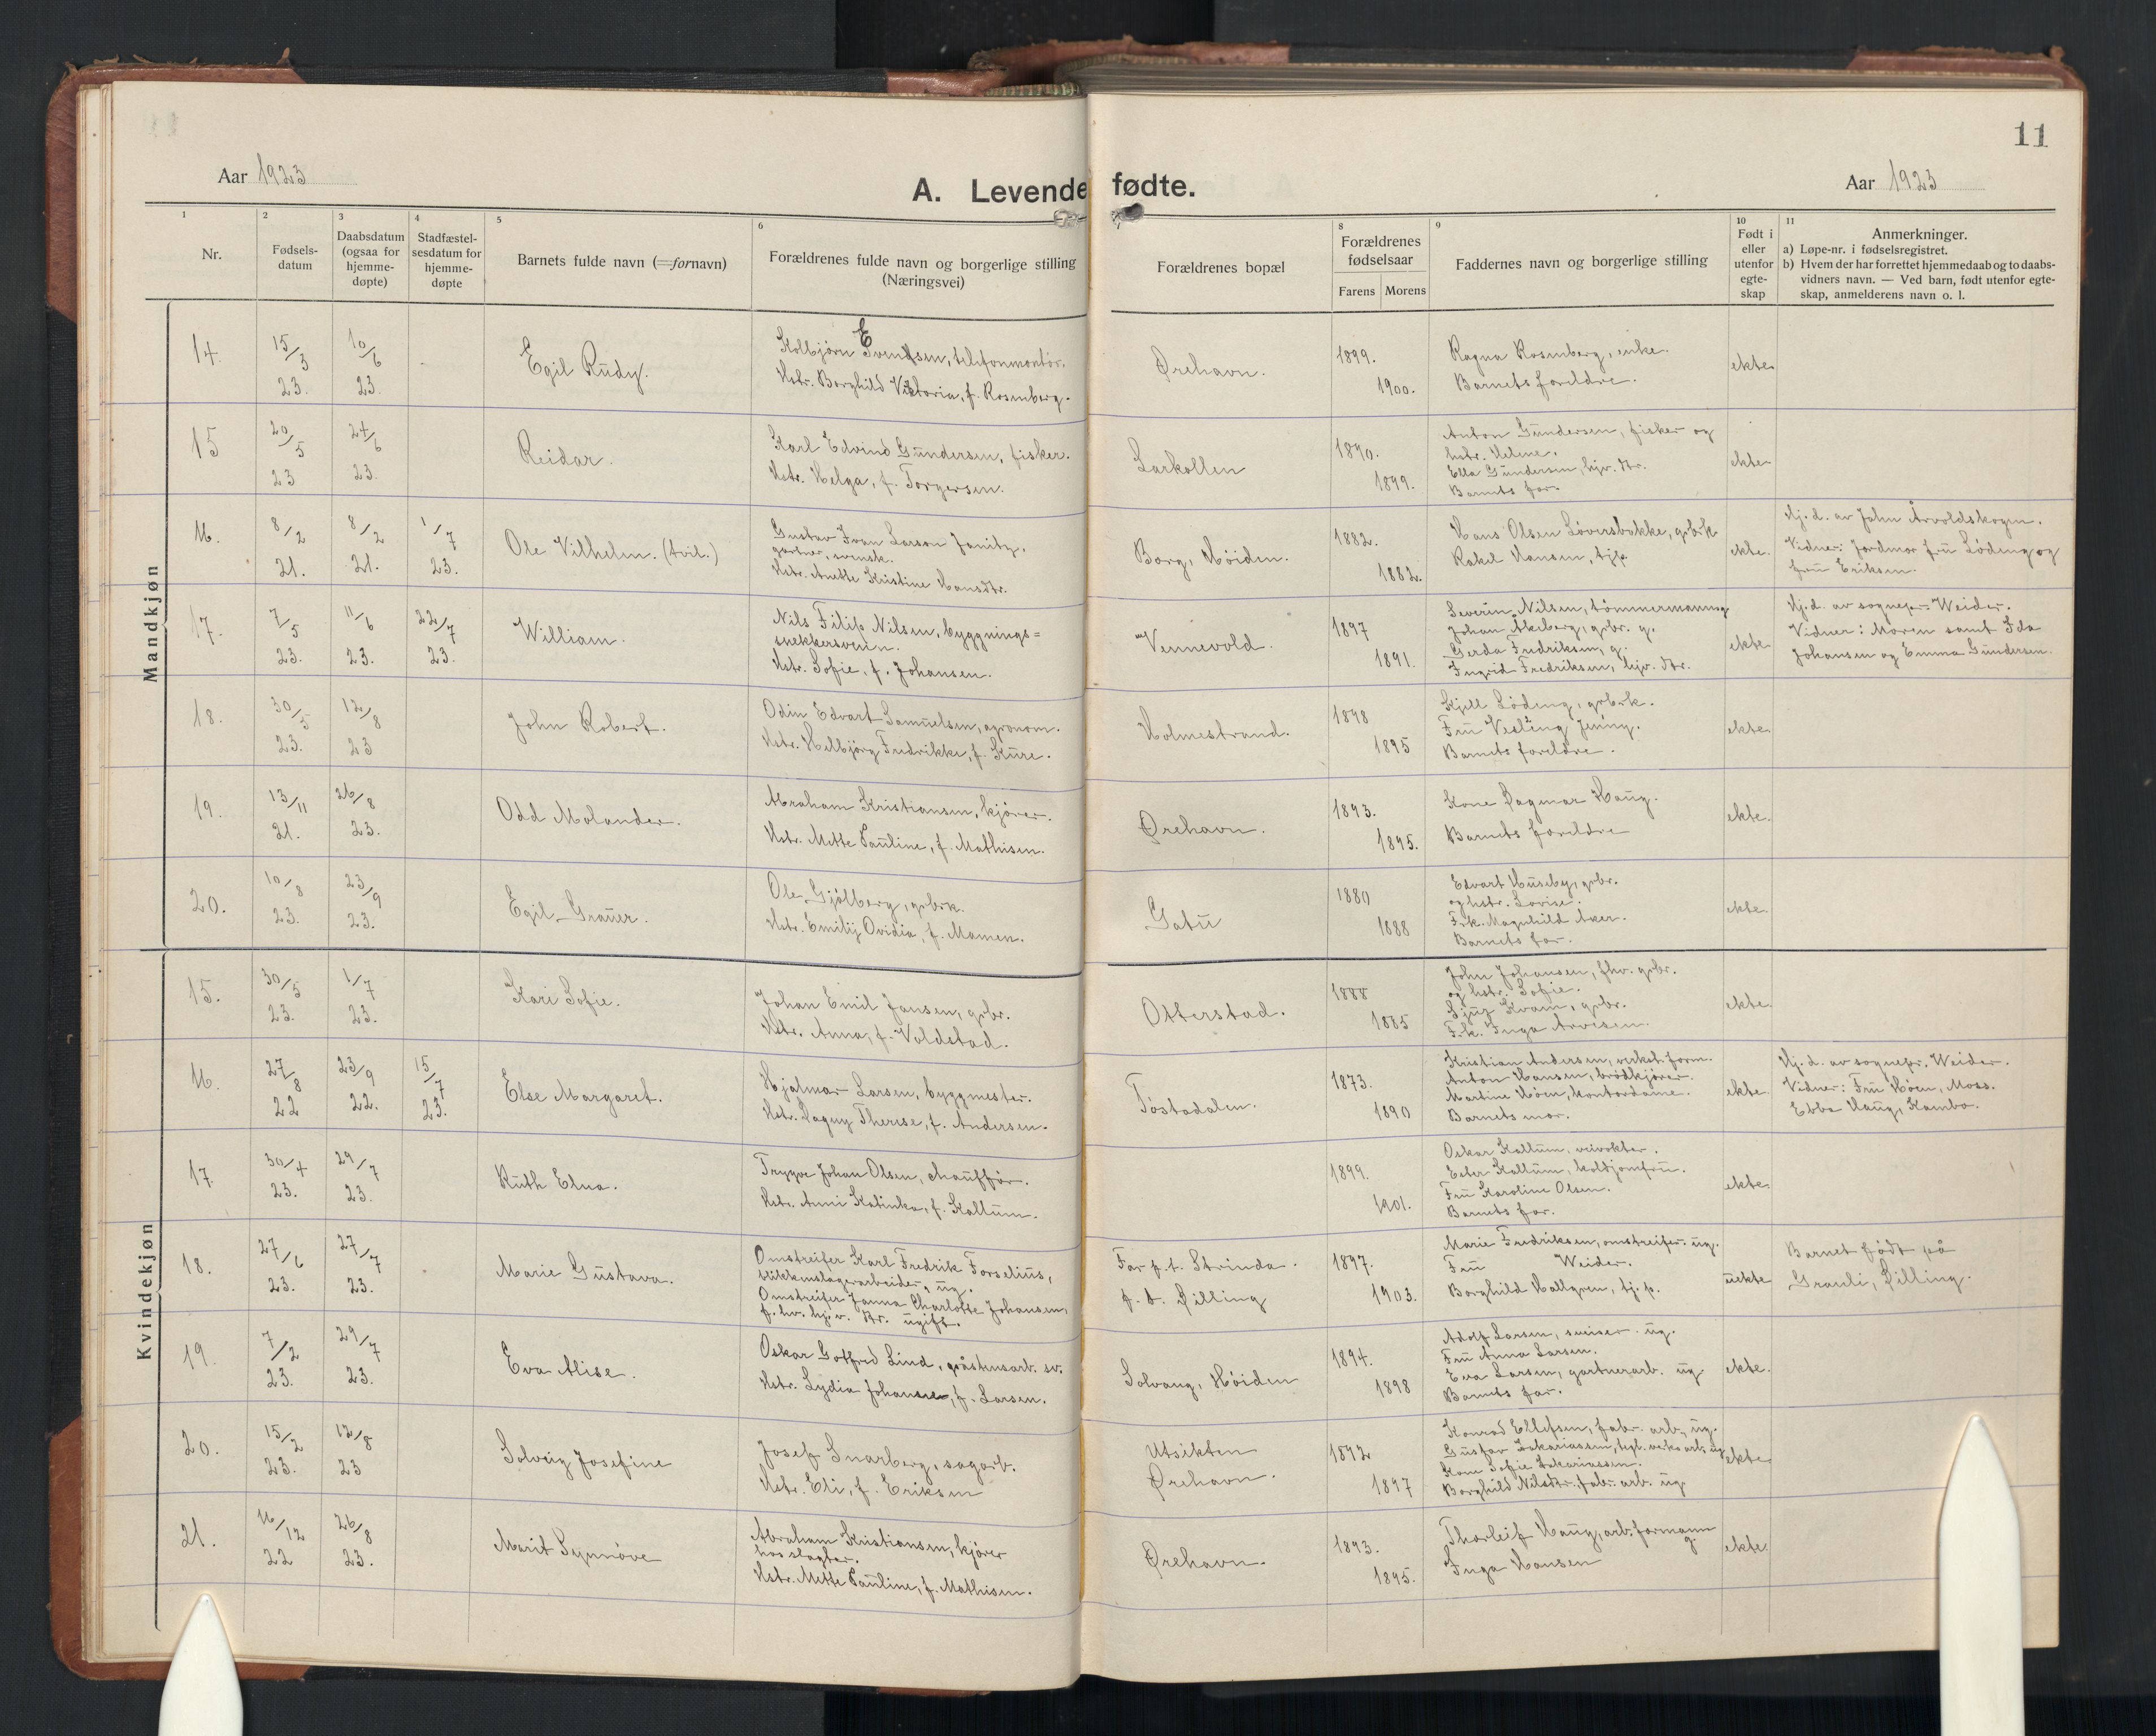 11
Aar 1923
A. Levende fødte.
Aar 1923
1
2
3
4
5
6
8
9
10
11
Nr.
Fødsels-
datum
Daabsdatum
(ogsaa for
hjemme-
døpte)
Stadfæstel-
sesdatum for
hjemme-
døpte
Barnets fulde navn (=fornavn)
Forældrenes fulde navn og borgerlige stilling
(Næringsvei)
Forældrenes bopæl
Forældrenes
fødselsaar
Farens
Morens
Faddernes navn og borgerlige stilling
Født i
eller
utenfor
egte-
skap
Anmerkninger.
a) Løpe-nr. i fødselsregistret.
b) Hvem der har forrettet hjemmedaab og to daabs-
vidners navn. — Ved barn, født utenfor egte-
skap, anmelderens navn o. l.
Mandkjøn
14.
15/3
23.
10/6
23.
Egil Rudy.
Kolbjørn Evensen, telefonmontør.
Hstr. Borghild Viktoria, f. Rosenberg.
Ørehavn.
1899.
1900.
Ragna Rosenberg, enke.
Barnets foreldre.
ekte
15
20/5
23
24/6
23.
Reidar.
Karl Edvind Gundersen, fisker.
Hstr. Helga, f. Torgersen.
Larkollen
1890.
1899.
Anton Gundersen, fisker og
hstr. Helene.
Ella Gundersen, hjv. dtr.
Barnets far.
ekte
16.
8/2
21.
8/2
21.
1/7
23.
Ole Vilhelm. (tvil.)
Gustav Ivan Larson Janitz,
gartner, svensk.
Hstr. Anette Kristine Hansdtr.
Borg, Høiden.
1882.
1882.
Hans Olsen Løversbakke, grbrk.
Rakel Hansen, tjp.
ekte.
Hj. d. av John Årvoldskogen.
Vidner: Jordmor fru Lødeng og
fru Eriksen.
17.
7/5
23.
11/6
23.
22/7
23.
William.
Nils Filip Nilsen, byggnings=
snekkersvein.
Hstr. Sofie, f. Johansen.
Vennevold.
1897
1891.
Severin Nilsen, tømmermann g.
Johan Åkeberg, grbr. g.
Gerda Fredriksen, g.
Ingrid Fredriksen, hjv. dtr.
ekte
Hj. d. av sognepr. Weider.
Vidner: Moren samt Ida
Johansen og Emma Gundersen.
18.
30/5
23.
12/8
23
John Robert.
Odin Edvart Samuelsen, agronom.
Hstr. Helbjørg Fredrikke, f. Kure.
Holmestrand.
1898
1895
Kjell Lødeng, grbrk.
Fru Vesleng Jenny.
Barnets foreldre.
ekte
19.
13/11
21.
26/8
23.
Odd Molander.
Abraham Kristiansen, kjører.
Hstr. Mette Pauline, f. Mathisen.
Ørehavn.
1893.
1895.
Kone Dagmar Haug.
Barnets foreldre
ekte.
20.
10/8
23.
23/9
23.
Egil Graner.
Ole Gjølberg, grbrk.
Hstr. Emilij Ovidia, f. Mamen.
Gatu
1880
1888
Edvart Huseby, grbr.
og hstr. Lovise.
Frk. Magnhild Aker.
Barnets far.
ekte
Kvindekjøn
15.
30/5
23.
1/7
23.
Kari Sofie.
Johan Emil Jansen, grbr.
Hstr. Anna, f. Voldstad.
Otterstad.
1888
1885
John Johansen, fhv. grbr.
og hstr. Sofie.
Kvam, grbr.
Frk. Inga Arvesen.
ekte.
16.
27/8
22
23/9
22.
15/7
23.
Else Margaret.
Hjalmar Larsen, byggmester.
Hstr. Dagny Therese, f. Andersen.
Tøstadalen.
1873.
1890
Kristian Andersen, verkst. form.
Anton Hansen, brødkjører.
Martine Høen, kontordame.
Barnets mor.
ekte
Hj. d. av sognepr. Weider.
Vidner: Fru Høen, Moss.
Ebba Haug, Kambo.
17.
30/4
23.
29/7
23.
Ruth Elna.
Trygve Johan Olsen, chauffør.
Hstr. Anni Katinka, f. Kallum.
1899.
1901.
Oskar Kallum, veivokter.
Ester Kallum, koldjomfru.
Fru Karoline Olsen.
Barnets far.
ekte
18.
27/6
23.
27/7
23.
Marie Gustava.
Omstreifer Karl Fredrik Forselius,
blikkenslagerarbeider, ug.
Omstreifer Janna Charlotte Johansen,
f. hv. hj. v. dtr. ugift.
Far p.t. Strinda.
f. d. Rilling
1897.
1903.
Marie Fredriksen, omstreifer. ug.
Fru Weider.
Borghild Hallgren, tj. p.
uekte
Barnet født på
Grauli, Rilling.
19.
7/2
23.
29/7
23.
Eva Alise.
Oskar Gotfred Lind, gråstensarb. sv.
Hstr. Lydia Johanne, f. Larsen.
Solvang, Høiden
1894.
1898
Adolf Larsen, sveiser. ug.
Fru Anna Larsen.
Eva Larsen, gartnerarb. ug.
Barnets far.
ekte.
20.
15/2
23.
12/8
23
Solveig Josefine
Josef Snarberg, sagarb.
Hstr. Eli, f. Eriksen
Utsikten
Ørehavn.
1892
1897
Konrad Ellefsen, fabr. arb., ug.
Gustav Sakariassen, tegl. verks arb. ug.
Kone Sofie Sakariassen.
Borghild Nilsdtr. fabr. arb. ug.
ekte
21.
16/12
22
26/8
23.
Marit Synnøve
Abraham Kristiansen, kjører
hos slagter.
Hstr. Mette Pauline, f. Mathisen.
Ørehavn.
1893.
1895.
Thorleif Haug, arb. formann
g.
Inga Hansen
ekte.